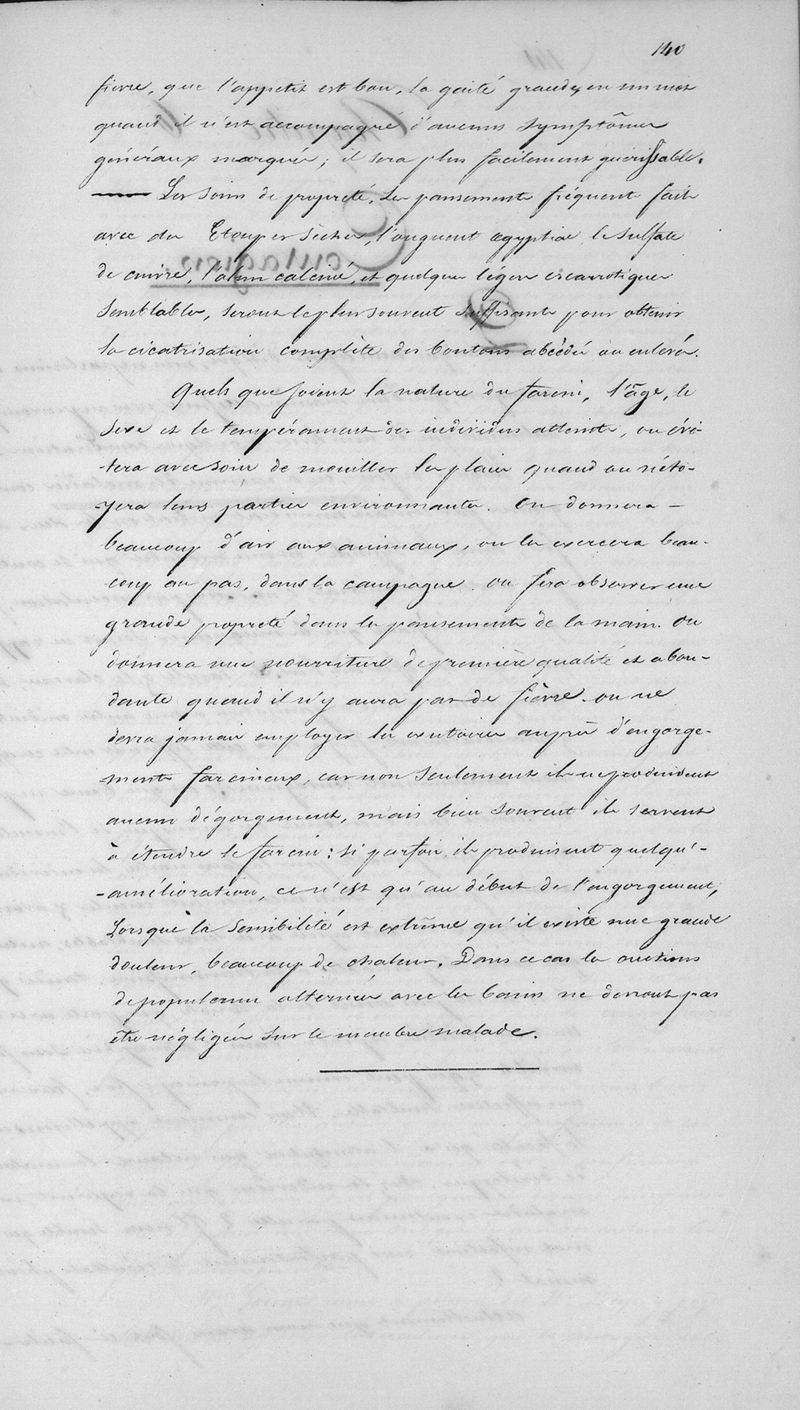 140
fièvre, que l'appetit est bon, la gaité grande, en un mot
quand il n'est accompagné d'aucuns symptômes
généraux marqués; il sera plus facilement guérissable.
— Les soins de propreté, les pansements fréquents faits
avec des Etoupes séches, l'onguent ægyptiac le sulfate
de cuivre, l'alun calciné, et quelques légers escarrotiques
semblables, seront le plus souvent suffisants pour obtenir
la cicatrisation complète des boutons abcédés ou ulcérés.
Quels que soient la nature du farcin, l'âge, le
sexe et le tempérament des individus atteints, on évi-
tera avec soin de mouiller les plaies quand on néto-
-yera leurs parties environnantes. On donnera -
beaucoup d'air aux animaux, on les exercera beau-
coup au pas, dans la campagne. on fera observer une
grande propreté dans les pansements de la main. on
donnera une nourriture de première qualité et abon-
dante quand il n'y aura pas de fièvre. on ne
devra jamais employer les exutoires auprès d'engorge-
ments farcineux, car non seulement ils ne produisent
aucun dégorgement, mais bien souvent ils servent
à étendre le farcin: si parfois ils produisent quelqu'-
-amélioration, ce n'est qu'au début de l'engorgement,
Lorsque la sensibilité est extrême qu'il existe une grande
douleur, beaucoup de chaleur. Dans ce cas les onctions
de populeum alternées avec les bains ne devront pas
être négligées sur le membre malade.